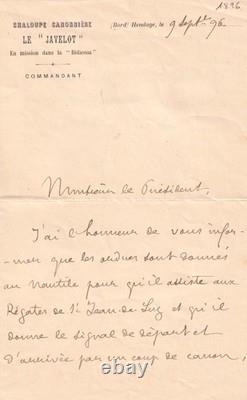 1896
CHALOUPE CANONNIÈRE
LE "JAVELOT"
En mission dans la "Bidassoa"
COMMANDANT
(Bord) Hendaye, le 9 Septbre 96
Monsieur le Président,
J'ai l'honneur de vous infor-
-mer que les ordres sont donnés
au Nautile pour qu'il assiste aux
Régates de St Jean-de-Luz et qu'il
donne le signal de départ et
d'arrivée par un coup de canon,